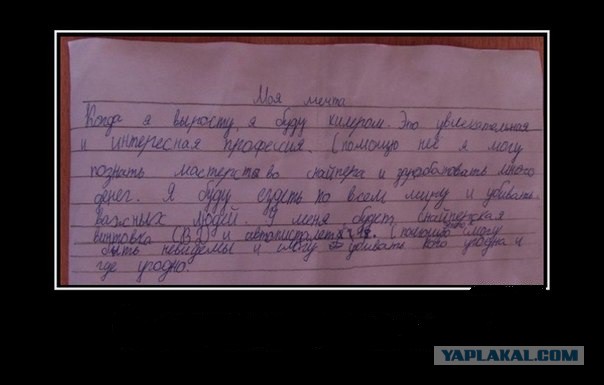 Моя мечта
Когда я вырасту, я буду килером. Это увлекательная
и интересная профессия. С помощю неё я могу
познать мастерство снайпера и зарабатовать много
денег. Я буду ездеть по всем миру и убивать
важных людей. У меня будет снайперская
винтовка (ВЗ) и автопистолет С помощю смогу
быть невидемы и смогу убивать кого угодно и
где угодно.
YAPLAKAL.COM